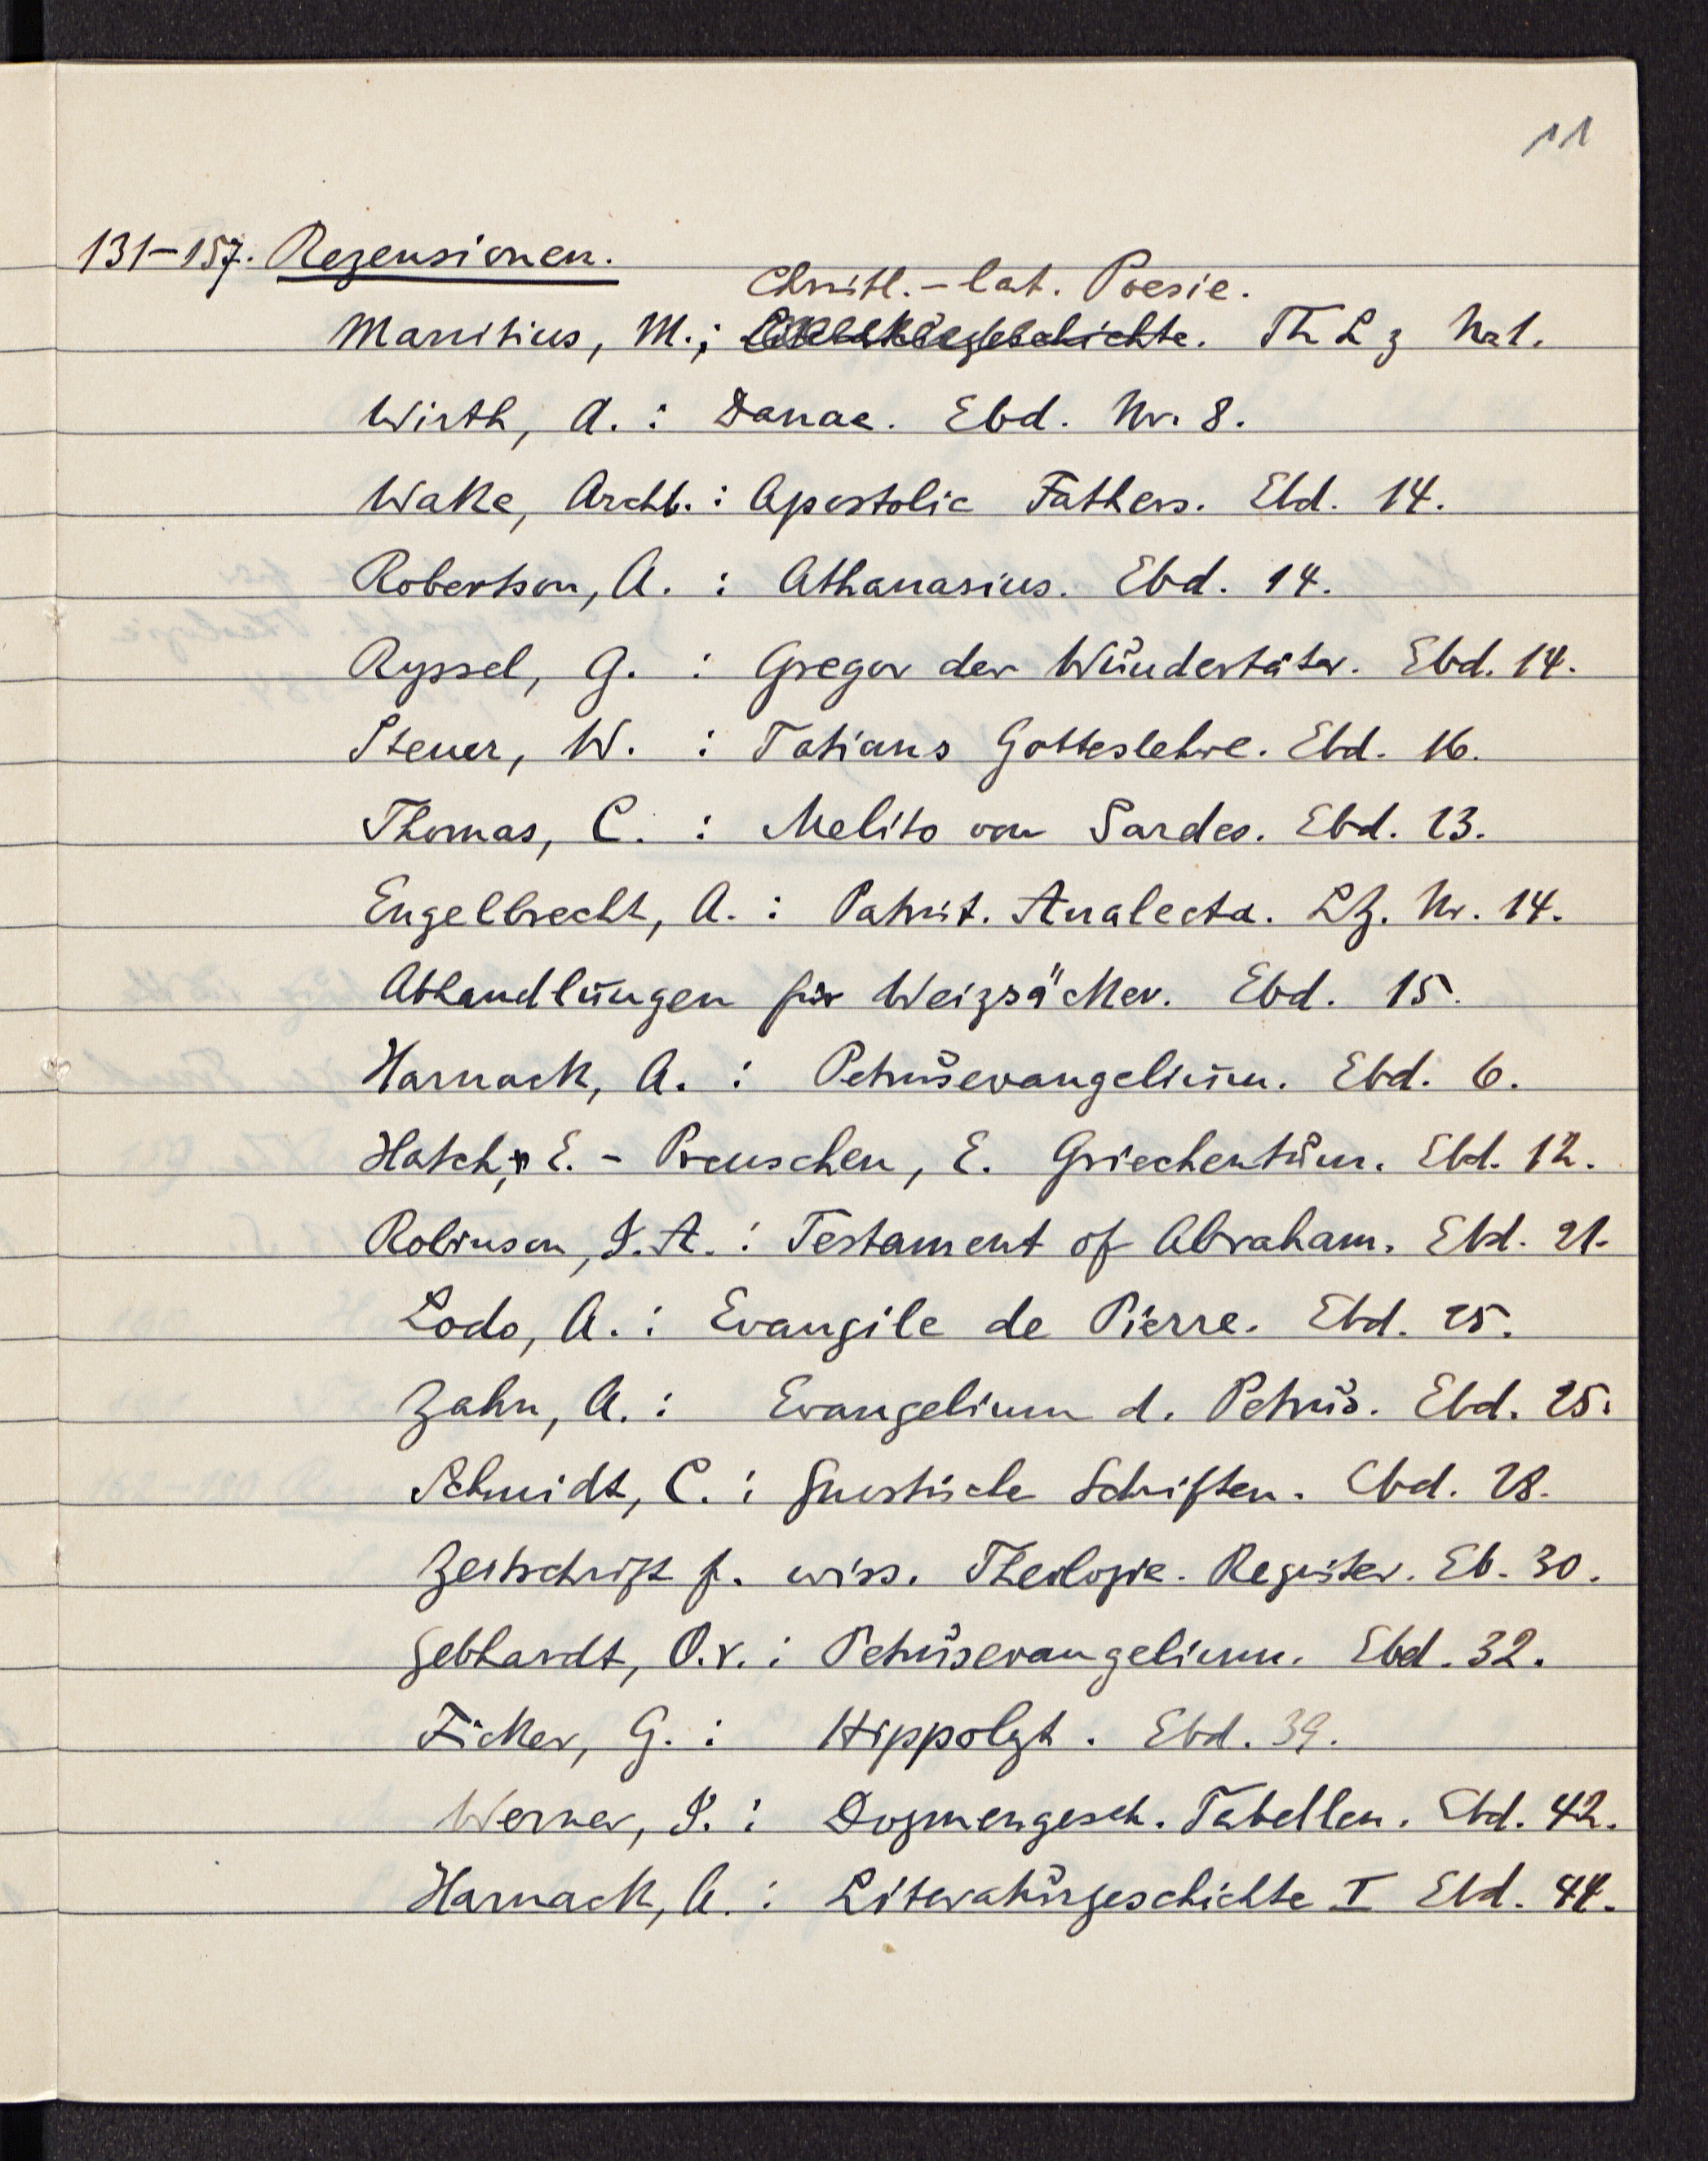 11
131-157. Rezensionen.
Christl.-lat. Poesie.
Manitius, M.; Literaturgeschichte. Th L z No 1.
Wirth, A.: Danae. Ebd. Nr. 8.
Wake, Archb.: Apostolic Fathers. Ebd. 14.
Robertson, A.: Athanasius. Ebd. 14.
Ryssel, G.: Gregor der Wundertäter. Ebd. 14.
Steuer, W.: Tatians Gotteslehre. Ebd. 16.
Thomas, C.: Melito von Sardes. Ebd. 23.
Engelbrecht, A.: Patrist. Analecta. LZ. Nr. 14.
Abhandlungen für Weizsäcker. Ebd. 15.
Harnack, A.: Petrusevangelium. Ebd. 6.
Hatch, E. - Preuschen, E. Griechentum. Ebd. 12.
Robinson, J. A.: Testament of Abraham. Ebd. 21.
Lods, A.: Evangile de Pierre. Ebd. 25.
Zahn, A.: Evangelium d. Petrus. Ebd. 25.
Schmidt, C.: Gnostische Schriften. Ebd. 28.
Zeitschrift f. wiss. Theologie. Register. Eb. 30.
Gebhardt, O.v.: Petrusevangelium. Ebd. 32.
Ficker, G.: Hippolyt. Ebd. 39.
Werner, J.: Dogmengesch. Tabellen. Ebd. 42.
Harnack, A.: Literaturgeschichte I Ebd. 44.